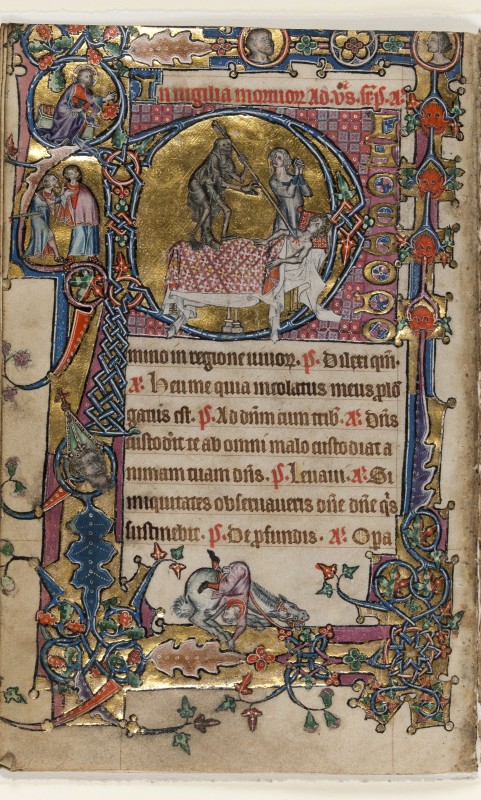 In uigilia mortuor Ad. Vs. sps. A.
mino in regione uiuor. P. Dilexi qm.
A. Heu me quia incolatus meus plō
gatus est. P. Ad dnm cum trib. A. Dns
custodit te ab omni malo custodiat a
nimam tuam dns. P. Leuaui. A. Si
iniquitates obseruaueris dne dne q̄s
sustinebit. P. De pfundis. A. Opa